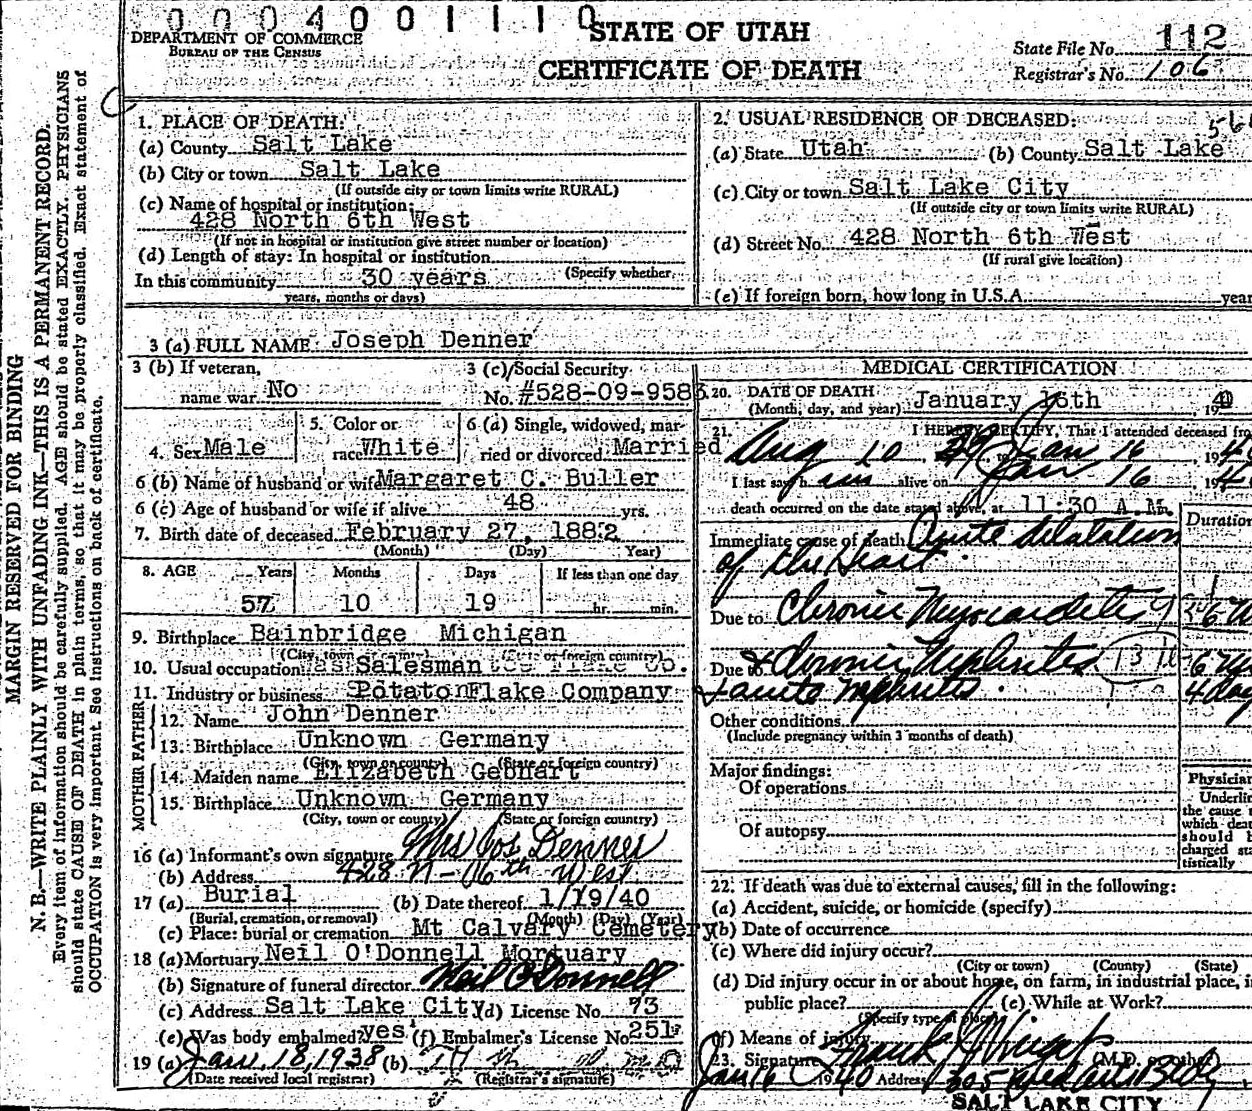 0004001110
DEPARTMENT OF COMMERCE
BUREAU OF THE CENSUS
STATE OF UTAH
CERTIFICATE OF DEATH
State File No. 112
Registrar's No. 106
MARGIN RESERVED FOR BINDING
N. B.—WRITE PLAINLY WITH UNFADING INK—THIS IS A PERMANENT RECORD.
Every item of information should be carefully supplied. AGE should be stated EXACTLY. PHYSICIANS
should state CAUSE OF DEATH in plain terms, so that it may be properly classified. Exact statement of
OCCUPATION is very important. See instructions on back of certificate.
1. PLACE OF DEATH:
(a) County Salt Lake
(b) City or town Salt Lake
(If outside city or town limits write RURAL)
(c) Name of hospital or institution:
428 North 6th West
(If not in hospital or institution give street number or location)
(d) Length of stay: In hospital or institution
(Specify whether
In this community 30 years
years, months or days)
2. USUAL RESIDENCE OF DECEASED:
(a) State Utah (b) County Salt Lake
(c) City or town Salt Lake City
(If outside city or town limits write RURAL)
(d) Street No. 428 North 6th West
(If rural give location)
(e) If foreign born, how long in U.S.A. year
3 (a) FULL NAME Joseph Denner
3 (b) If veteran,
name war No
3 (c) Social Security
No. #528-09-9583
4. Sex Male
5. Color or
race White
6 (a) Single, widowed, mar-
ried or divorced Married
6 (b) Name of husband or wife Margaret C. Buller
6 (c) Age of husband or wife if alive 48 yrs.
7. Birth date of deceased February 27, 1882
(Month) (Day) Year)
8. AGE Years Months Days If less than one day
57 10 19 hr. min.
9. Birthplace Bainbridge Michigan
(City, town or county) (State or foreign country)
10. Usual occupation Salesman
11. Industry or business Potato Flake Company
FATHER
12. Name John Denner
13. Birthplace Unknown Germany
(City, town or county) (State or foreign country)
MOTHER
14. Maiden name Elizabeth Gebhart
15. Birthplace Unknown Germany
(City, town or county) (State or foreign country)
16 (a) Informant's own signature Mrs Jos Denner
(b) Address 428 N - 6th West
17 (a) Burial (b) Date thereof 1/19/40
(Burial, cremation, or removal) (Month) (Day) (Year)
(c) Place: burial or cremation Mt Calvary Cemetery
18 (a) Mortuary Neil O'Donnell Mortuary
(b) Signature of funeral director Neil O'Donnell
(c) Address Salt Lake City (d) License No. 73
(e) Was body embalmed? yes (f) Embalmer's License No. 251
19 (a) Jan. 18, 1938 (b)
(Date received local registrar) (Registrar's signature)
MEDICAL CERTIFICATION
20. DATE OF DEATH
(Month, day, and year) January 16th, 1940
21. I HEREBY CERTIFY, That I attended deceased from
Aug 10, 39 to Jan 16, 1940
I last saw him alive on Jan 16, 1940
death occurred on the date stated above, at 11:30 A.M.
Duration
Immediate cause of death Acute dilatation
of the Heart.
Due to Chronic Myocarditis
Due to & chronic Nephritis 131
+ acute Nephritis.
Other conditions
(Include pregnancy within 3 months of death)
Major findings:
Of operations
Of autopsy
Physician
Underline
the cause
which death
should be
charged sta-
tistically
22. If death was due to external causes, fill in the following:
(a) Accident, suicide, or homicide (specify)
(b) Date of occurrence
(c) Where did injury occur?
(City or town) (County) (State)
(d) Did injury occur in or about home, on farm, in industrial place, in
public place? (e) While at Work?
(Specify type of place)
(f) Means of injury
23. Signature (M.D. or other)
Jan 16 1940 Address
SALT LAKE CITY